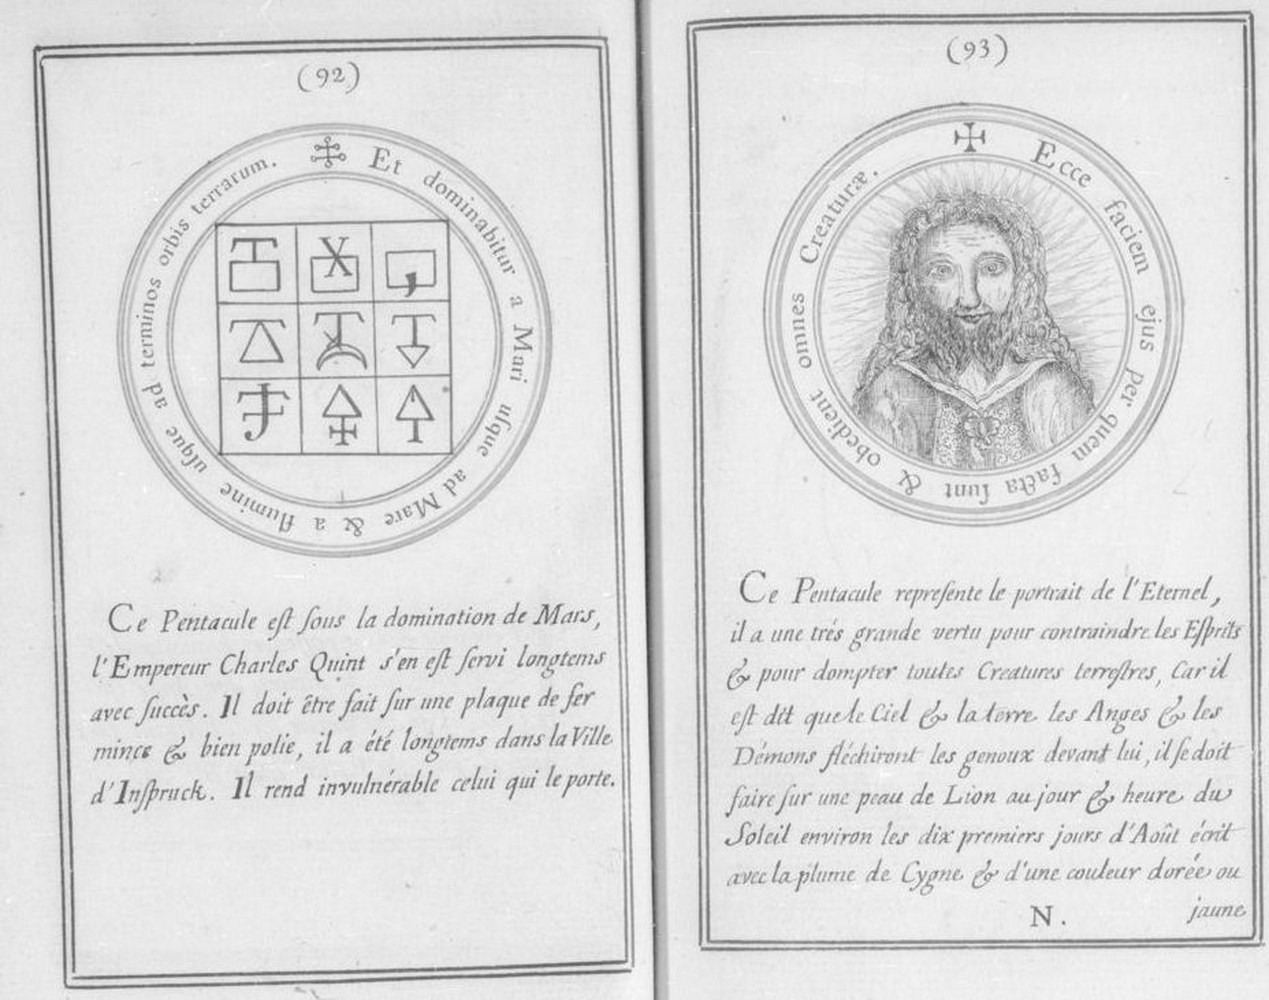 (92)
Et dominabitur a Mari uſque ad Mare & a flumine uſque ad terminos orbis terrarum.
Ce Pentacule eſt ſous la domination de Mars,
l'Empereur Charles Quint s'en eſt ſervi longtems
avec ſuccès. Il doit être fait ſur une plaque de fer
mince & bien polie, il a été longtems dans la Ville
d'Inſpruck. Il rend invulnérable celui qui le porte.
(93)
Ecce faciem ejus per quem facta ſunt & obedient omnes Creaturæ.
Ce Pentacule repreſente le portrait de l'Eternel,
il a une trés grande vertu pour contraindre les Eſprits
& pour dompter toutes Creatures terreſtres, Car il
eſt dit que le Ciel & la terre les Anges & les
Démons fléchiront les genoux devant lui, il ſe doit
faire ſur une peau de Lion au jour & heure du
Soleil environ les dix premiers jours d'Août écrit
avec la plume de Cygne & d'une couleur dorée ou
N. jaune